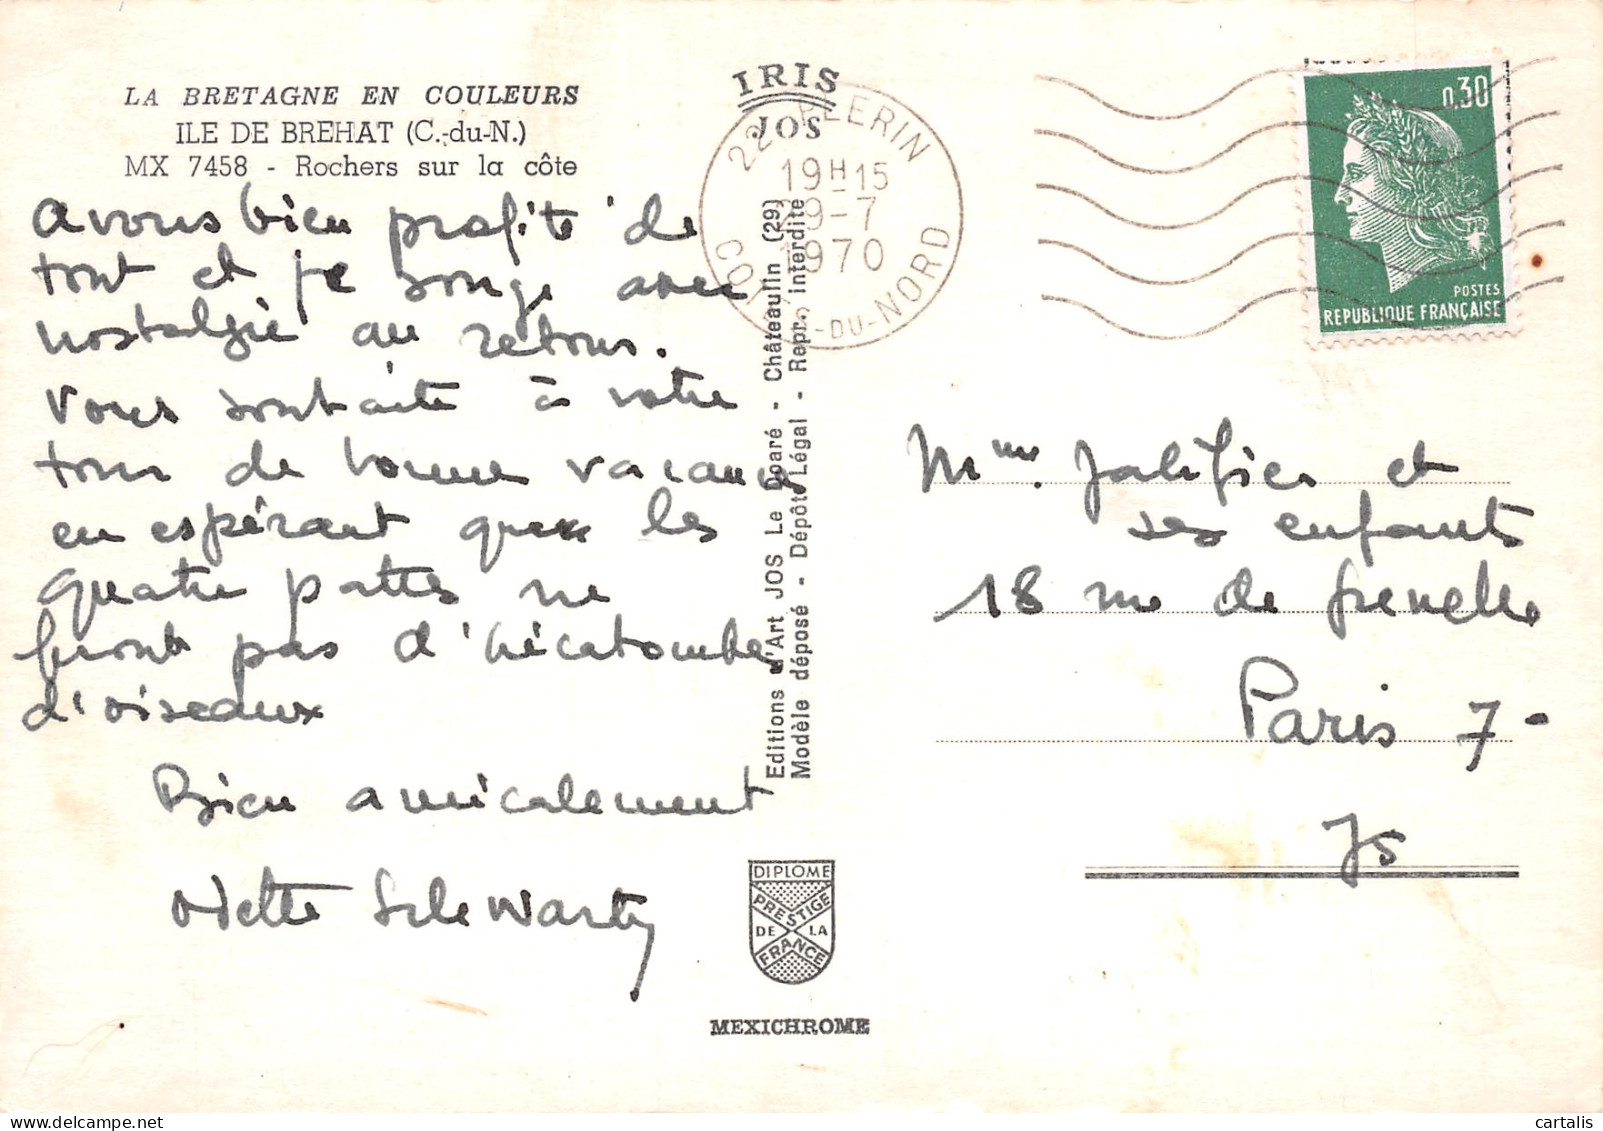 LA BRETAGNE EN COULEURS
ILE DE BREHAT (C.-du-N.)
MX 7458 - Rochers sur la côte
avons bien profité de
tout et je songe avec
nostalgie au retour.
Vous souhaite à votre
tour de bonne vacances
en espérant que les
quatre pattes ne
feront pas d'hécatombe
d'oiseaux
Bien amicalement
Odette Schwartz
IRIS
JOS
22 PLERIN
19H15
9-7
1970
COTES-DU-NORD
Editions d'Art JOS Le Doaré - Châteaulin (29)
Modèle déposé - Dépôt Légal - Repr. interdite
DIPLOME
PRESTIGE
DE LA
FRANCE
MEXICHROME
0,30
POSTES
REPUBLIQUE FRANÇAISE
Mme. Jalifier et
ses enfants
18 rue de Grenelle
Paris 7-
75
cartalis